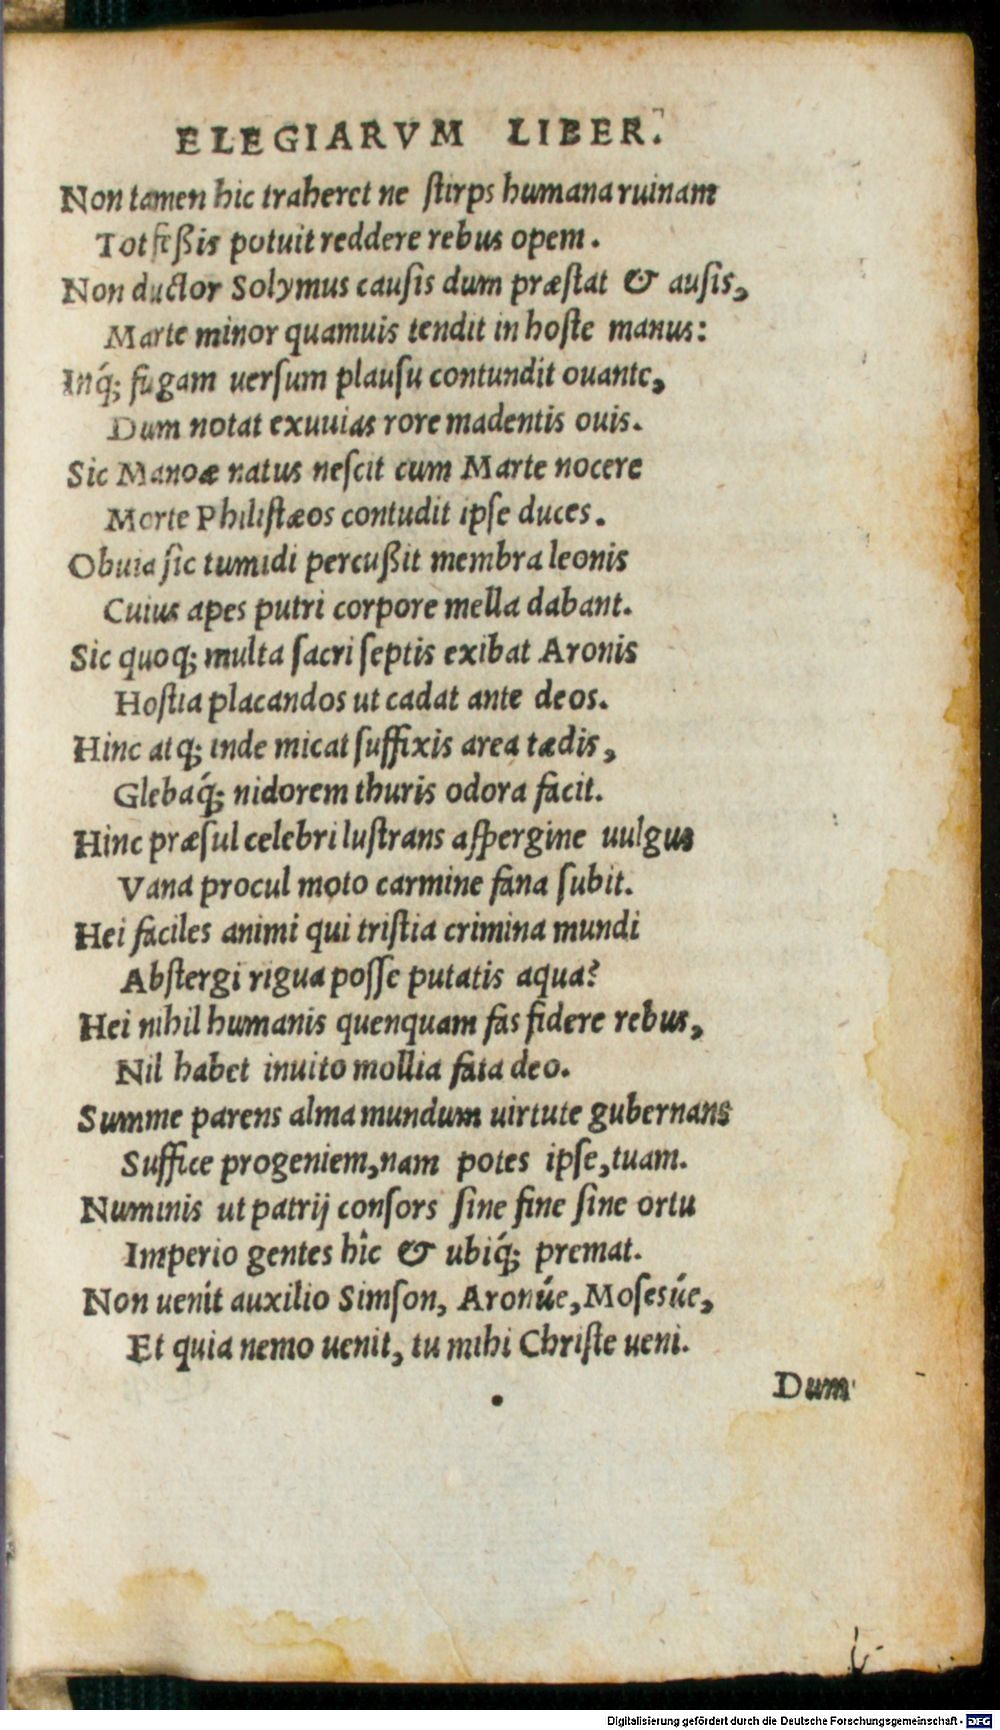 ELEGIARVM LIBER.
Non tamen hic traheret ne ſtirps humana ruinam
Tot feßis potuit reddere rebus opem.
Non ductor Solymus cauſis dum præſtat & auſis,
Marte minor quamuis tendit in hoſte manus:
Inq́; fugam uerſum plauſu contundit ouante,
Dum notat exuuias rore madentis ouis.
Sic Manoæ natus neſcit cum Marte nocere
Morte Philiſtæos contudit ipſe duces.
Obuia ſic tumidi percußit membra leonis
Cuius apes putri corpore mella dabant.
Sic quoq; multa ſacri ſeptis exibat Aronis
Hoſtia placandos ut cadat ante deos.
Hinc atq; inde micat ſuffixis area tædis,
Glebaq́; nidorem thuris odora facit.
Hinc præſul celebri luſtrans aſpergine uulgus
Vana procul moto carmine fana ſubit.
Hei faciles animi qui triſtia crimina mundi
Abſtergi rigua poſſe putatis aqua?
Hei nihil humanis quenquam fas fidere rebus,
Nil habet inuito mollia fata deo.
Summe parens alma mundum uirtute gubernans
Suffice progeniem,nam potes ipſe,tuam.
Numinis ut patrij conſors ſine fine ſine ortu
Imperio gentes hîc & ubiq́; premat.
Non uenit auxilio Simſon, Aronúe,Moſesúe,
Et quia nemo uenit, tu mihi Chriſte ueni.
Dum
Digitalisierung gefördert durch die Deutsche Forschungsgemeinschaft - DFG